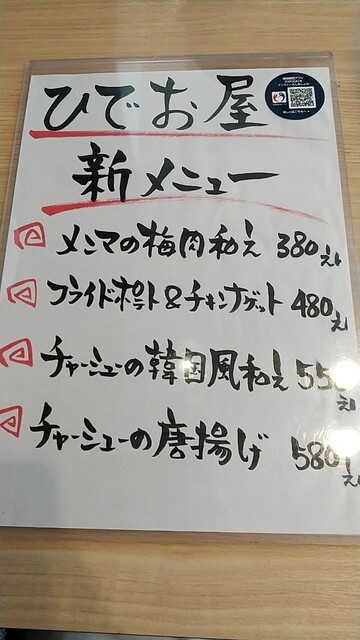 ひでお屋
新メニュー
メンマの梅肉和え 380えん
フライドポテト&チキンナゲット 480えん
チャーシューの韓国風和え 550えん
チャーシューの唐揚げ 580えん